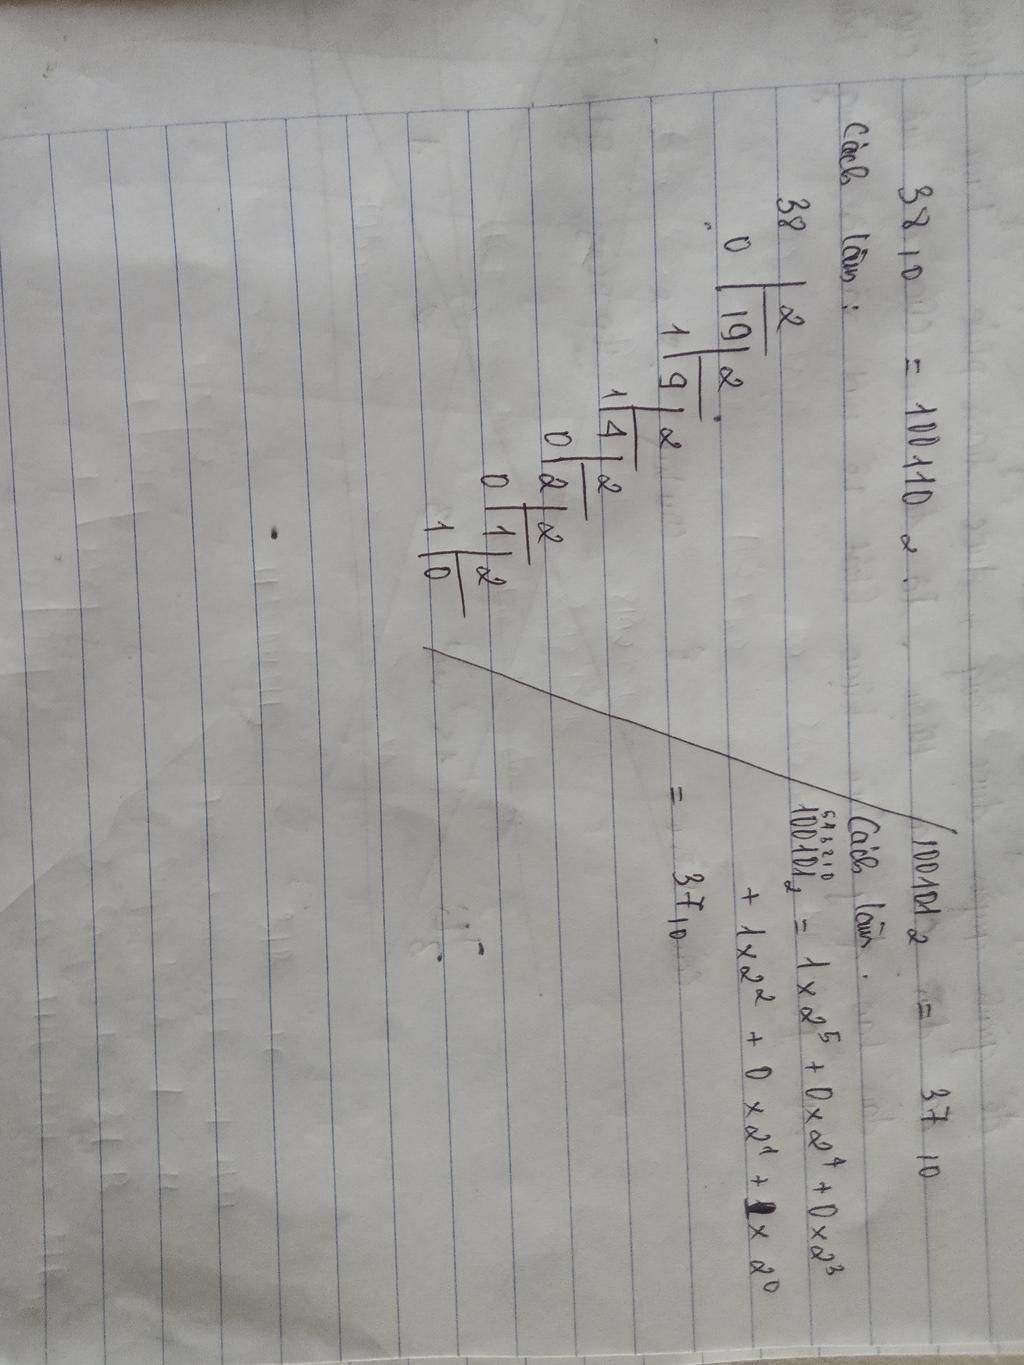 38 10 = 100110 2.
Cách làm:
38 2
0 19 2
1 9 2
1 4 2
0 2 2
0 1 2
1 0
100101 2 = 37 10
Cách làm.
5 4 3 2 1 0
100101 2 = 1 x 2⁵ + 0 x 2⁴ + 0 x 2³
+ 1 x 2² + 0 x 2¹ + 1 x 2⁰
= 37 10